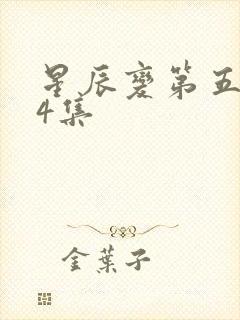 星辰變第五
4集
金葉子